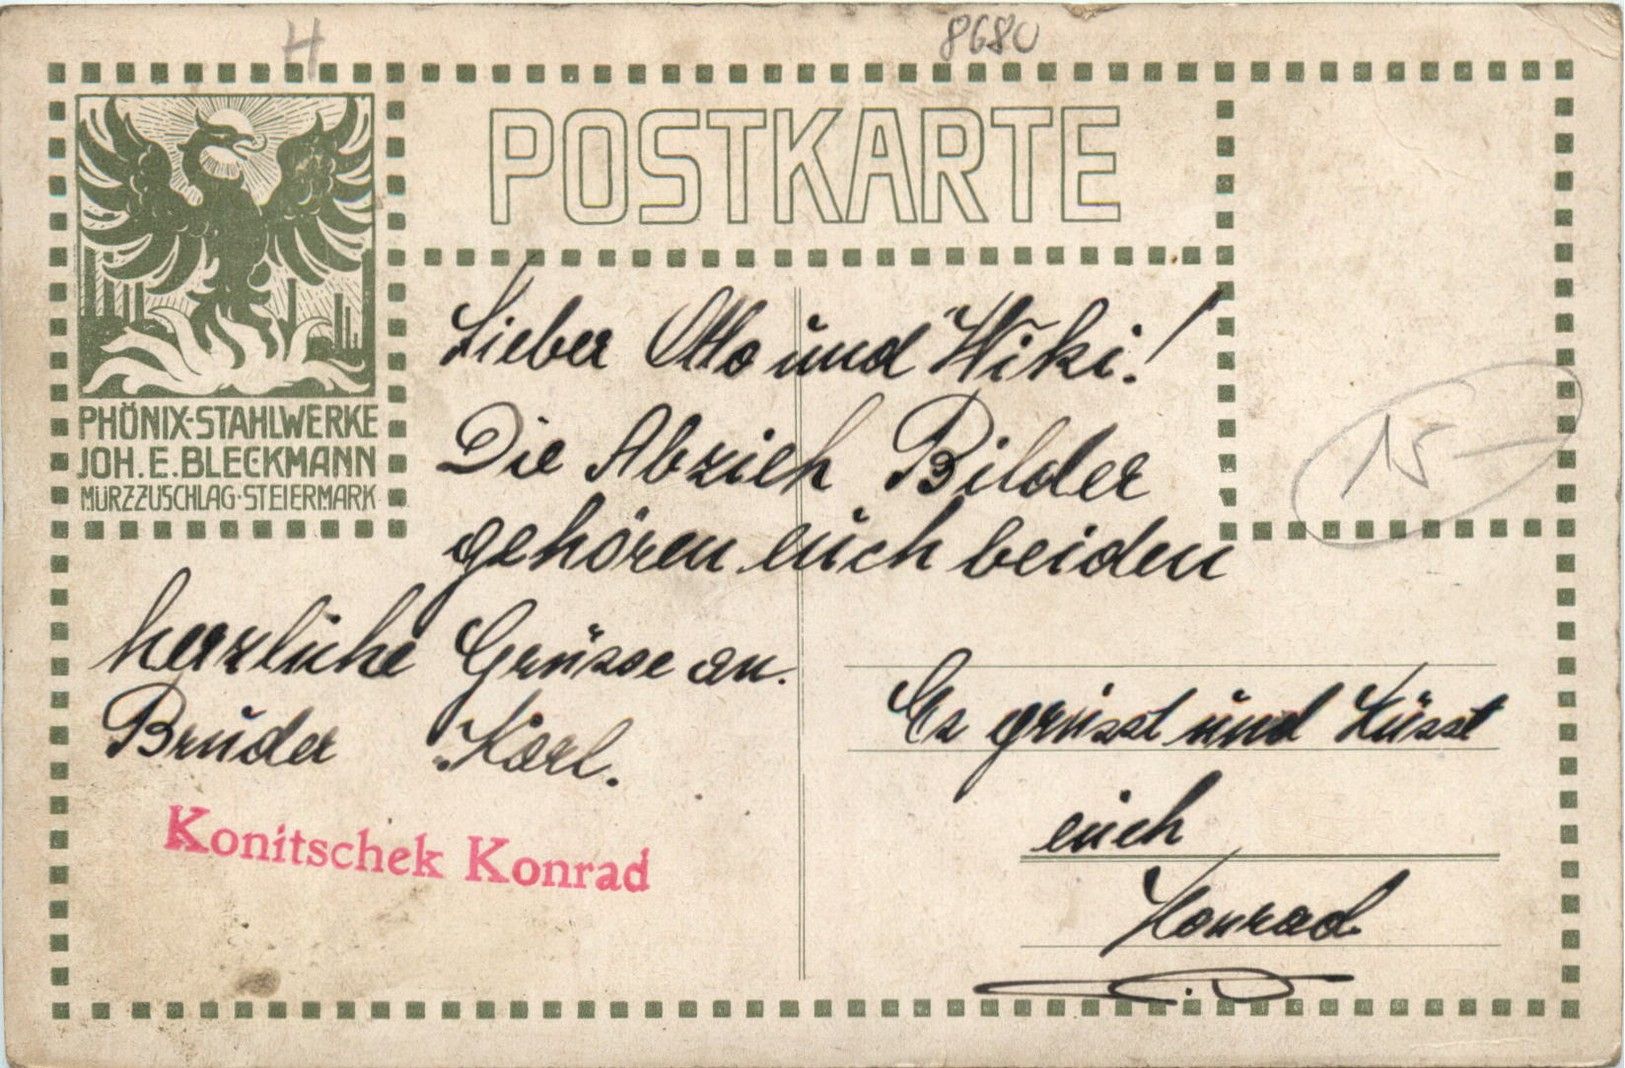 H
8680
POSTKARTE
PHÖNIX-STAHLWERKE
JOH. E. BLECKMANN
MÜRZZUSCHLAG-STEIERMARK
Lieber Otto und Wiki!
Die Abzieh Bilder
gehören euch beiden
15-
herzliche Grüsse an.
Bruder Karl.
Konitschek Konrad
Es grüsst und Küsst
euch
Konrad